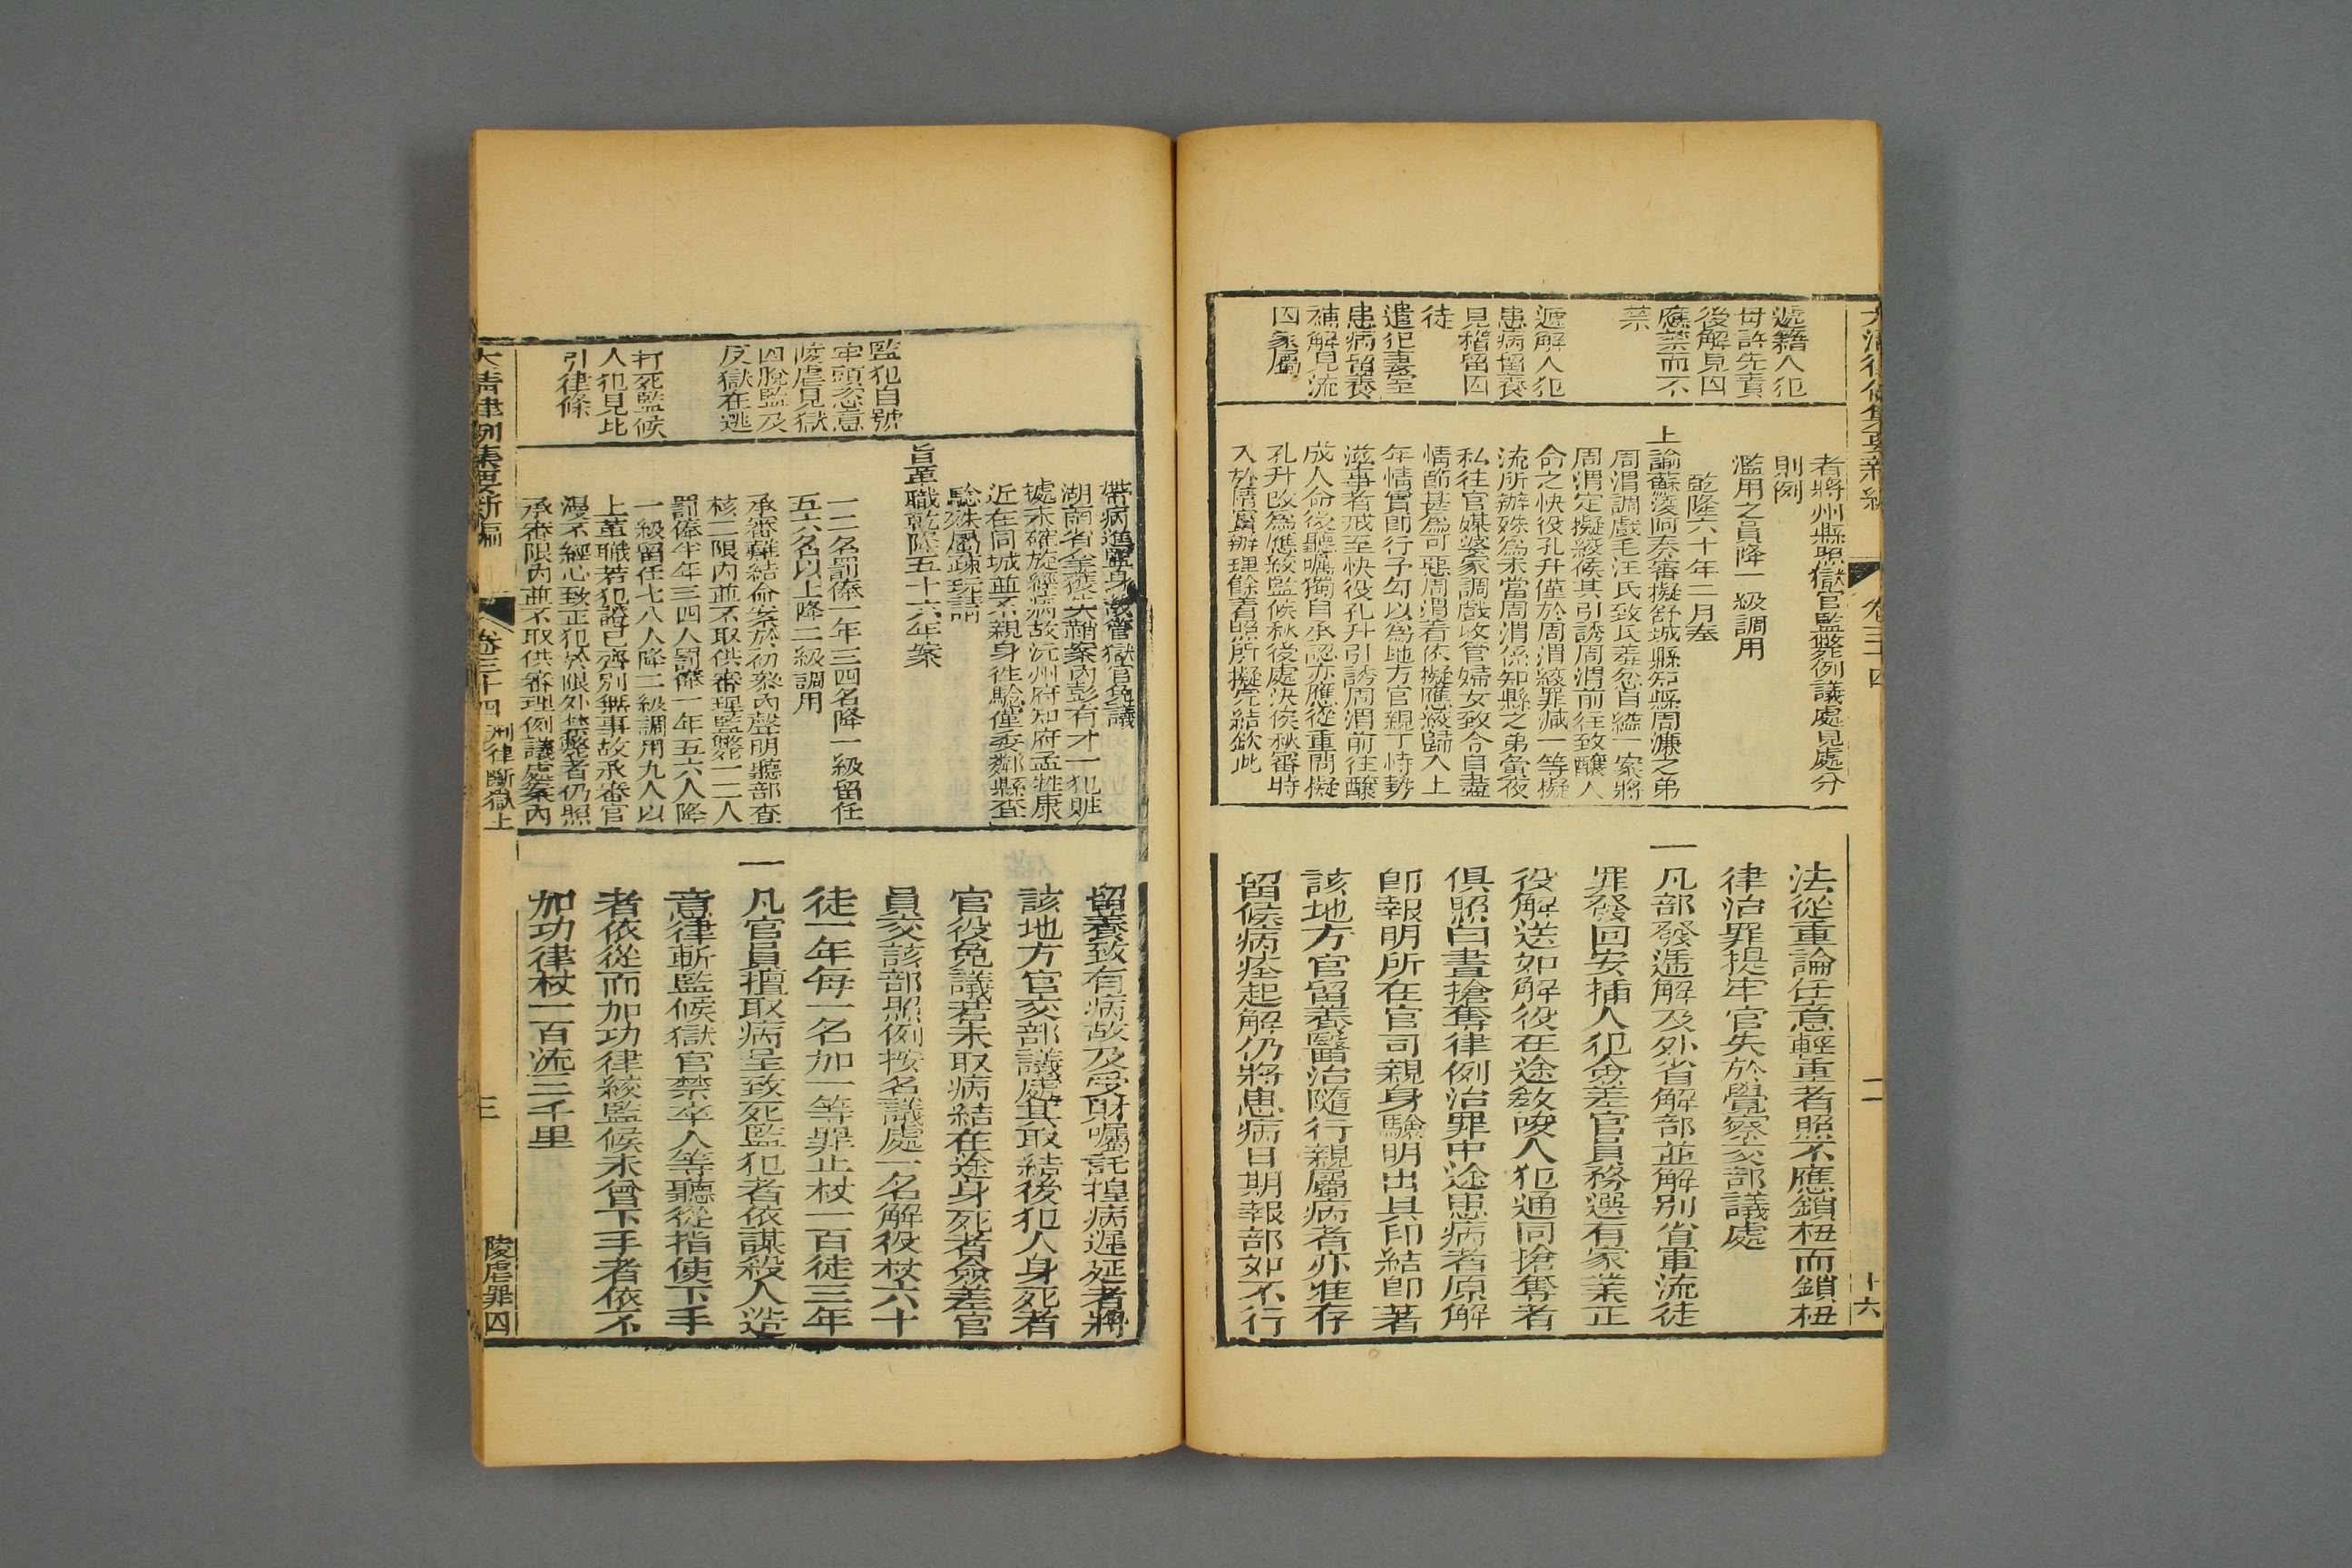 遞籍人犯
毋許先責
後解見囚
應禁而不
禁
遞解人犯
患病留養
見稽留囚
徒
遣犯妻室
患病留養
補解見流
囚家屬
者將州縣照獄官監斃例議處見處分
則例
濫用之員降一級調用
乾隆六十年二月奉
上諭蘇淩阿奏審擬舒城縣知縣周濂之弟
周渭調戲毛汪氏致氏羞忿自縊一案將
周渭定擬絞候其引誘周渭前往致釀人
命之快役孔升僅於周渭絞罪減一等擬
流所辦殊為未當周渭係知縣之弟黃夜
私往官媒婆家調戲收管婦女致令自盡
情節甚為可惡周渭着依擬應絞歸入上
年情實即行予勾以為地方官親丁恃勢
滋事者戒至快役孔升引誘周渭前往釀
成人命後聽囑獨自承認亦應從重問擬
孔升改為應絞監候秋後處決俟秋審時
入於情實辦理餘着照所擬完結欽此
法從重論任意輕重者照不應鎖杻而鎖杻
律治罪提牢官失於覺察交部議處
一凡部發遞解及外省解部並解別省軍流徒
罪發回安插人犯僉差官員務選有家業正
役解送如解役在途敎唆人犯通同搶奪者
俱照白晝搶奪律例治罪中途患病者原解
卽報明所在官司親身驗明出具印結卽著
該地方官留養醫治隨行親屬病者亦准存
留候病痊起解仍將患病日期報部如不行
大清律例集要新編
卷三十四
二
十六
監犯自號
牢頭恣意
陵虐見獄
囚脫監及
反獄在逃
打死監候
人犯見比
引律條
帶病進監身故管獄官免議
湖南省拏獲失鞘案內彭有才一犯賍
據未確旋經病故沅州府知府孟甡康
近在同城並不親身往驗僅委鄰縣查
驗殊屬疎玩請
旨革職乾隆五十六年案
一二名罰俸一年三四名降一級留任
五六名以上降二級調用
承審難結命案於初叅內聲明聽部查
核二限內並不取供審理監斃一二人
罰俸半年三四人罰俸一年五六人降
一級留任七八人降二級調用九人以
上革職若犯證已齊別無事故承審官
漫不經心致正犯於限外禁斃者仍照
承審限內並不取供審理例議處案內
留養致有病故及受財囑託揑病遲延者將
該地方官交部議處其取結後犯人身死者
官役免議若未取病結在途身死者僉差官
員交該部照例按名議處一名解役杖六十
徒一年每一名加一等罪止杖一百徒三年
一凡官員擅取病呈致死監犯者依謀殺人造
意律斬監候獄官禁卒人等聽從指使下手
者依從而加功律絞監候未曾下手者依不
加功律杖一百流三千里
大清律例集要新編
卷三十四
刑律斷獄上
三
陵虐罪囚